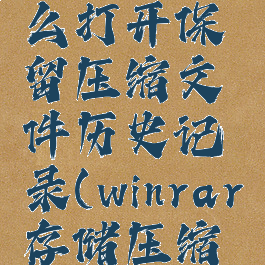 么打开保
留压缩文
件历史记
录(winrar
存储压缩